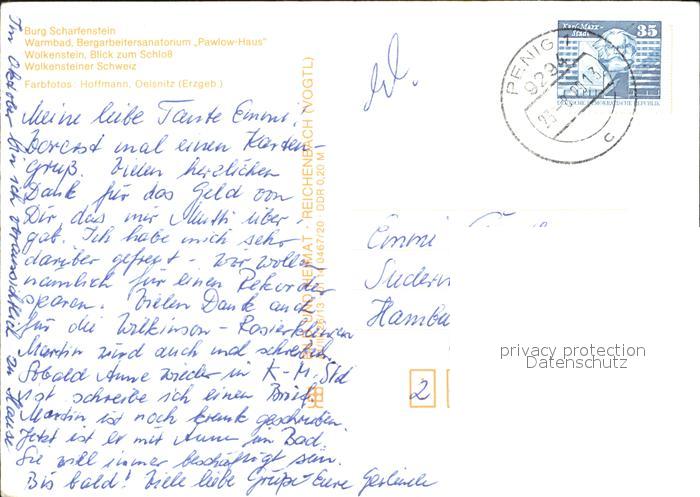 Burg Scharfenstein
Warmbad, Bergarbeitersanatorium „Pawlow-Haus"
Wolkenstein, Blick zum Schloß
Wolkensteiner Schweiz
Farbfotos: Hoffmann, Oelsnitz (Erzgeb.)
Meine liebe Tante Emmi,
Vorerst mal einen Karten-
gruß. Vielen herzlichen
Dank für das Geld von
Dir, das mir Mutti über
gab. Ich habe mich sehr
darüber gefreut - wir wollen
nämlich für einen Rekorder
sparen. Vielen Dank auch
für die Wilkinson-Rasierklingen
Martin wird auch mal schreiben.
Sobald Anne wieder in K-M-Std
ist schreibe ich einen Brief.
Martin ist noch krank geschrieben.
Jetzt ist er mit Anne im Bad.
Sie will immer beschäftigt sein.
Bis bald! Viele liebe Grüße Eure Gerlinde
Im Oktober bin ich voraussichtlich zu Hause
BILD UND HEIMAT · REICHENBACH (VOGTL)
0467/20 DDR 0,20 M
Karl-Marx-
Stadt
35
DEUTSCHE DEMOKRATISCHE REPUBLIK
PENIG
929
c
Emmi
Sudern
Hambu
2
privacy protection
Datenschutz